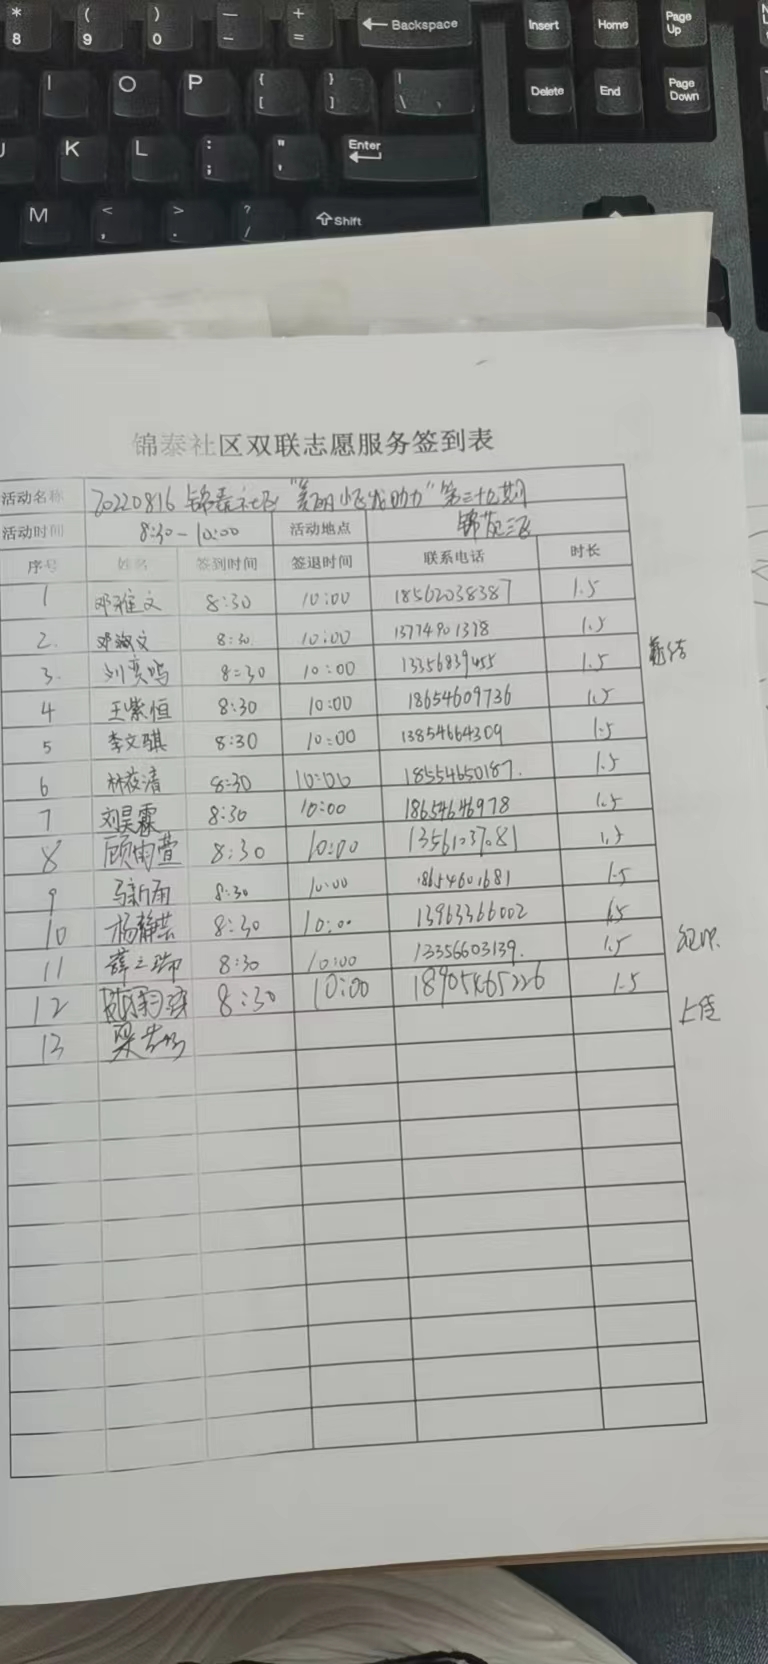 * ( ) — + ← Backspace Insert Home Page Up
8 9 0 - =
I O P { } | Delete End Page Down
[ ] \
J K L : " Enter
; '
M < > ? ⇧ Shift
, . /
锦泰社区双联志愿服务签到表
活动名称 20220816 锦泰社区 "美丽小区我助力" 第三十九期
活动时间 8:30-10:00 活动地点 锦苑三区
序号 姓名 签到时间 签退时间 联系电话 时长
1 邓雅文 8:30 10:00 18562038387 1.5
2. 邓淑文 8:30 10:00 13774901378 1.5
3. 刘奕鸣 8:30 10:00 13356839455 1.5
4 王紫恒 8:30 10:00 18654609736 1.5
5 李文骐 8:30 10:00 13854664309 1.5
6 林筱清 8:30 10:00 18554650187. 1.5
7 刘昊霖 8:30 10:00 18654646978 1.5
8 顾雨萱 8:30 10:00 13561037081 1.5
9 马新雨 8:30 10:00 18654601681 1.5
10 杨静芸 8:30 10:00 13963366002 1.5
11 薛 8:30 10:00 13356603139. 1.5
12 8:30 10:00 18905465226 1.5
13 梁
上传